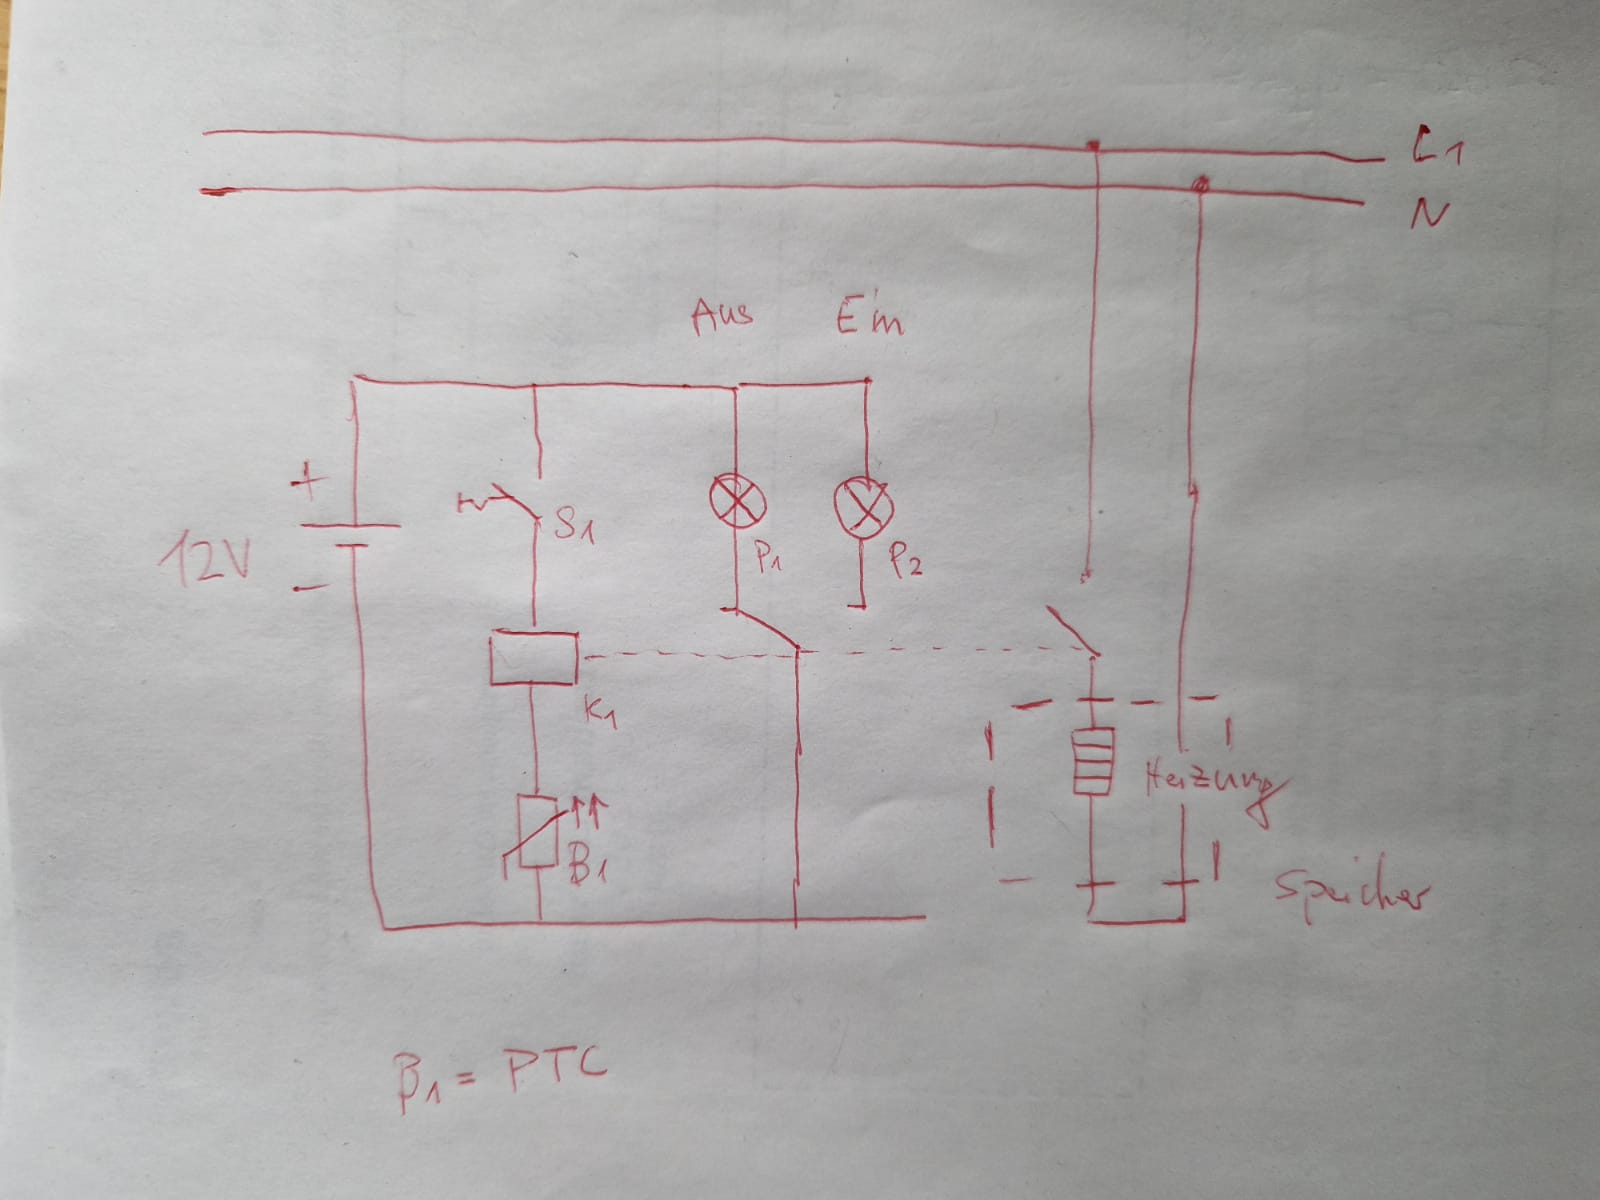 L1
N
Aus Ein
+
12V
-
S1
P1 P2
K1
B1
Heizung
Speicher
B1 = PTC